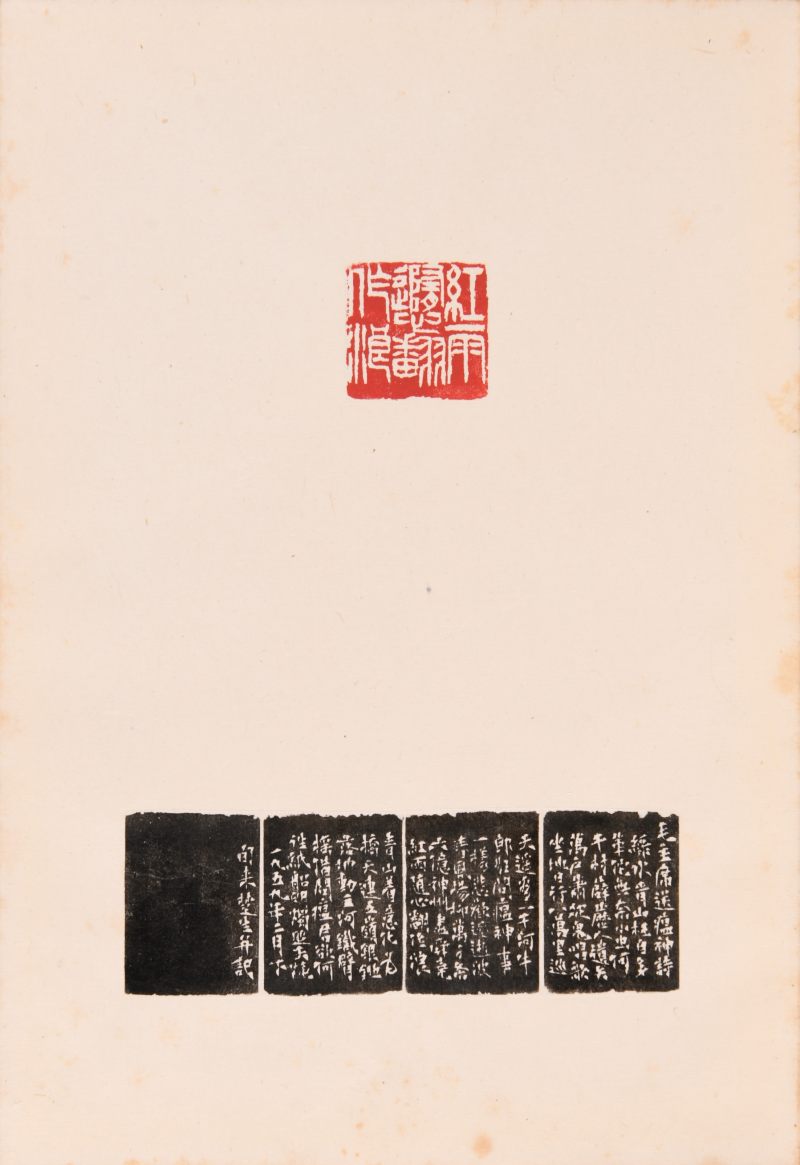 紅雨
隨心翻
作浪
毛主席送瘟神詩
綠水青山枉自多
華佗無奈小虫何
千村薜荔人遺矢
萬户蕭疏鬼唱歌
坐地日行八萬里巡
天遙看一千河牛
郎欲問瘟神事
一樣悲歡逐逝波
春風楊柳萬千條
六億神州盡舜堯
紅雨隨心翻作浪
青山着意化為
橋天連五嶺銀鋤
落地動三河鐵臂
搖借問瘟君欲何
往紙船明燭照天燒
一九五九年二月下
旬來楚生并記